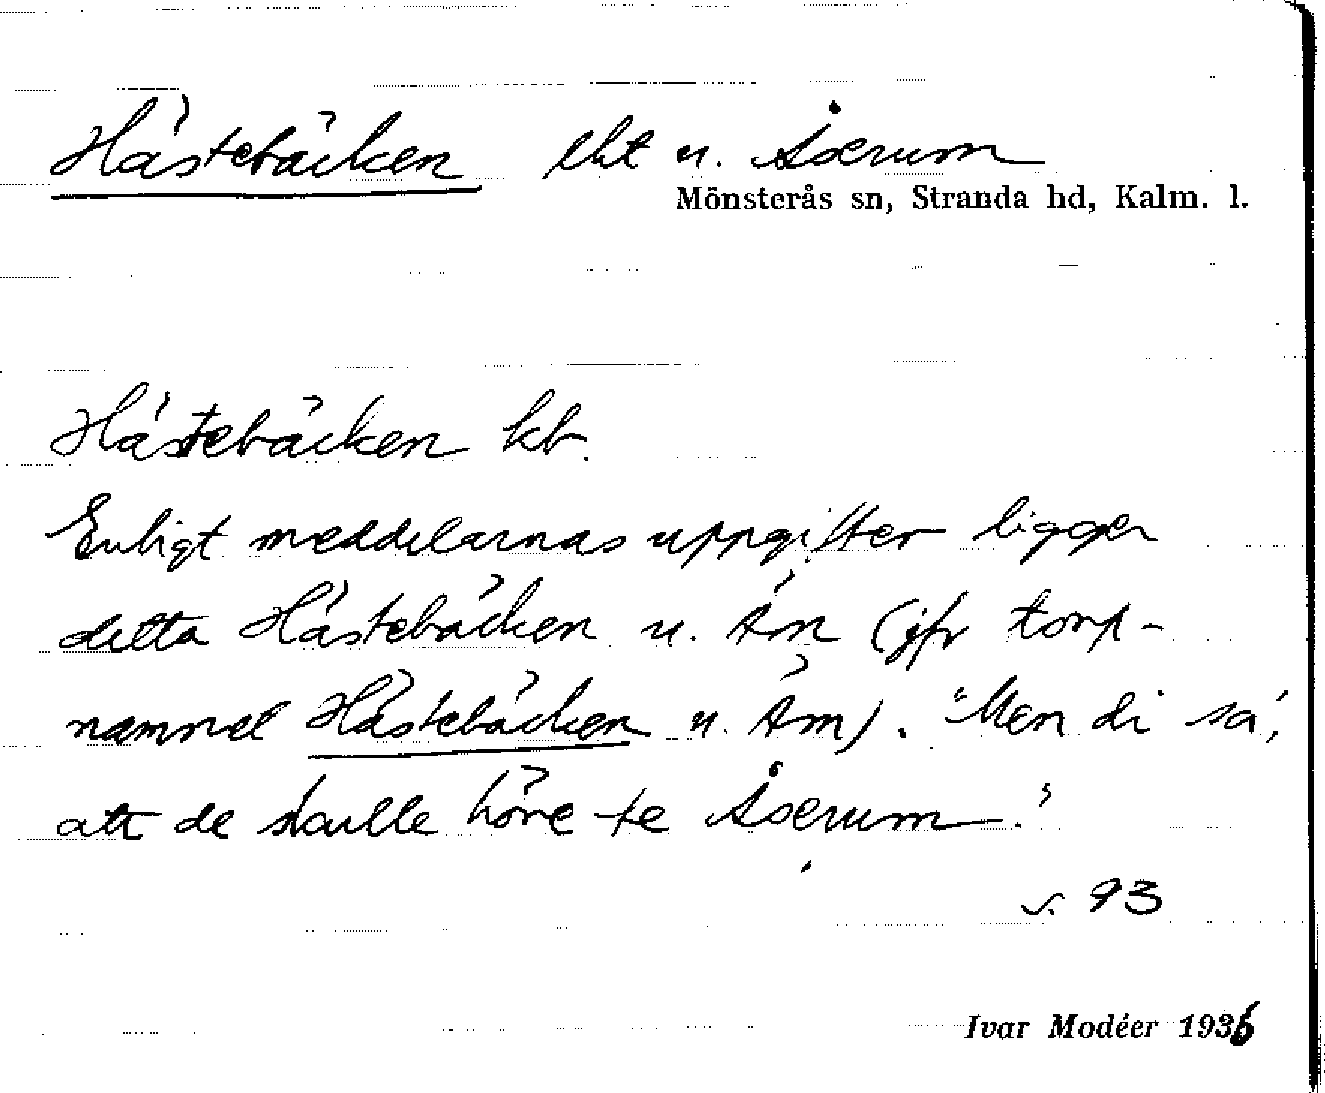 Hästebäcken lht u. Åserum
Mönsterås sn, Stranda hd, Kalm. l.
Hästebäcken kb.
Enligt meddelarnas uppgifter ligger
detta Hästebäcken u. Äm (jfr torp-
namnet Hästebäcken u. Äm). "Men di sa,
att de skulle höre te Åserum."
s. 93
Ivar Modéer 1936